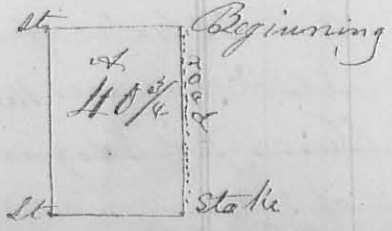 St. Beginning
A
40 3/4
Road
St. Stake